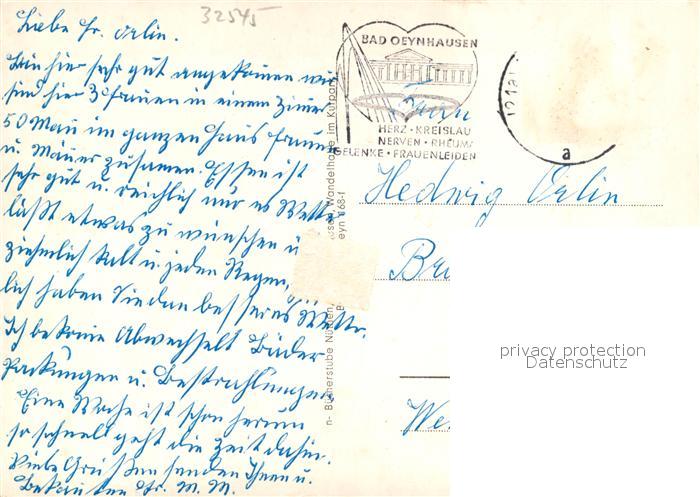 32545
Liebe Fr. Orlin.
Bin hier sehr gut angekommen wir
sind hier 3 Frauen in einem Zimmer
50 Man im ganzen Haus Frauen
u. Mäner zusamen. Essen ist
sehr gut u. reichlich nur es Wetter
läßt etwas zu wünschen ü
ziehmlich kalt u. jeden Regen,
lich haben Sie dan besseres Wetter.
Ich bekome Abwechselt Bäder
Packungen u. Bestrahlungen
Eine Woche ist schon herum
so schnell geht die Zeit dahin.
Viele Grüße senden Ihnen u.
Bekannten Fr. M. M.
BAD OEYNHAUSEN
HERZ · KREISLAU
NERVEN · RHEUM
GELENKE · FRAUENLEIDEN
a
Frau
Hedwig Orlin
Br
We
n- Bücherstube Nülten
Wandelhalle im Kurpark
eyn 168-f
privacy protection
Datenschutz